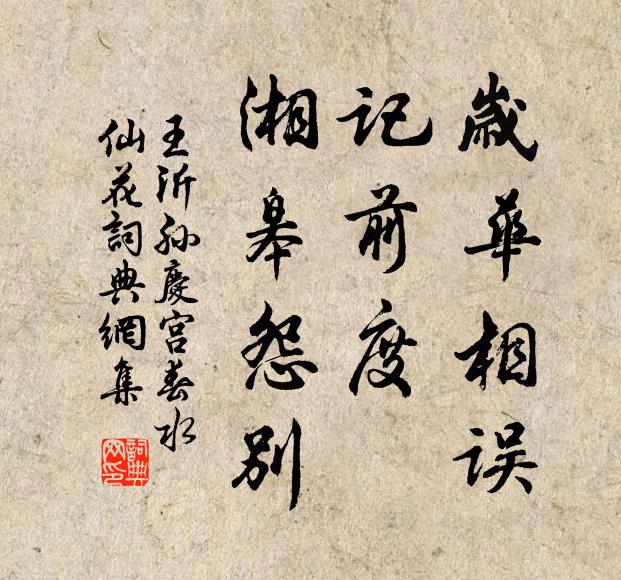 歲華相误
记前度
湘皋怨别
王沂孫慶宫春水
仙花詞典網集
詞典网印